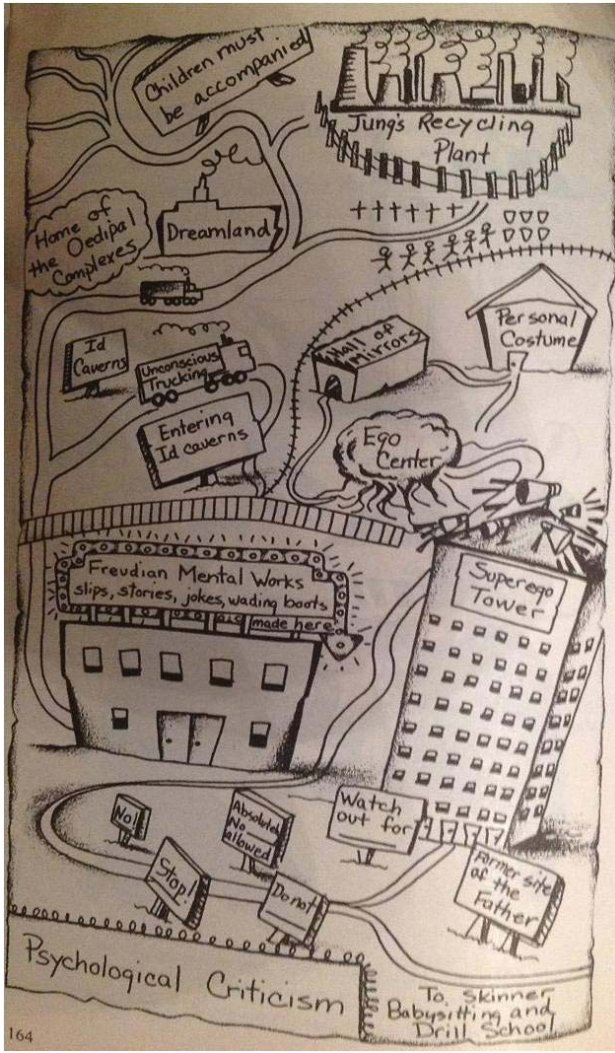 Children must
be accompanied
Jung's Recycling
Plant
Home of
the Oedipal
Complexes
Dreamland
Personal
Costume
Hall of
Mirrors
Id
Caverns
Unconscious
Trucking
Entering
Id caverns
Ego
Center
Freudian Mental Works
slips, stories, jokes, wading boots
made here
Superego
Tower
No!
Absolutely
No
allowed
Watch
out for
Stop!
Do not
Former site
of the
Father
Psychological Criticism
To Skinner
Babysitting and
Drill School
164